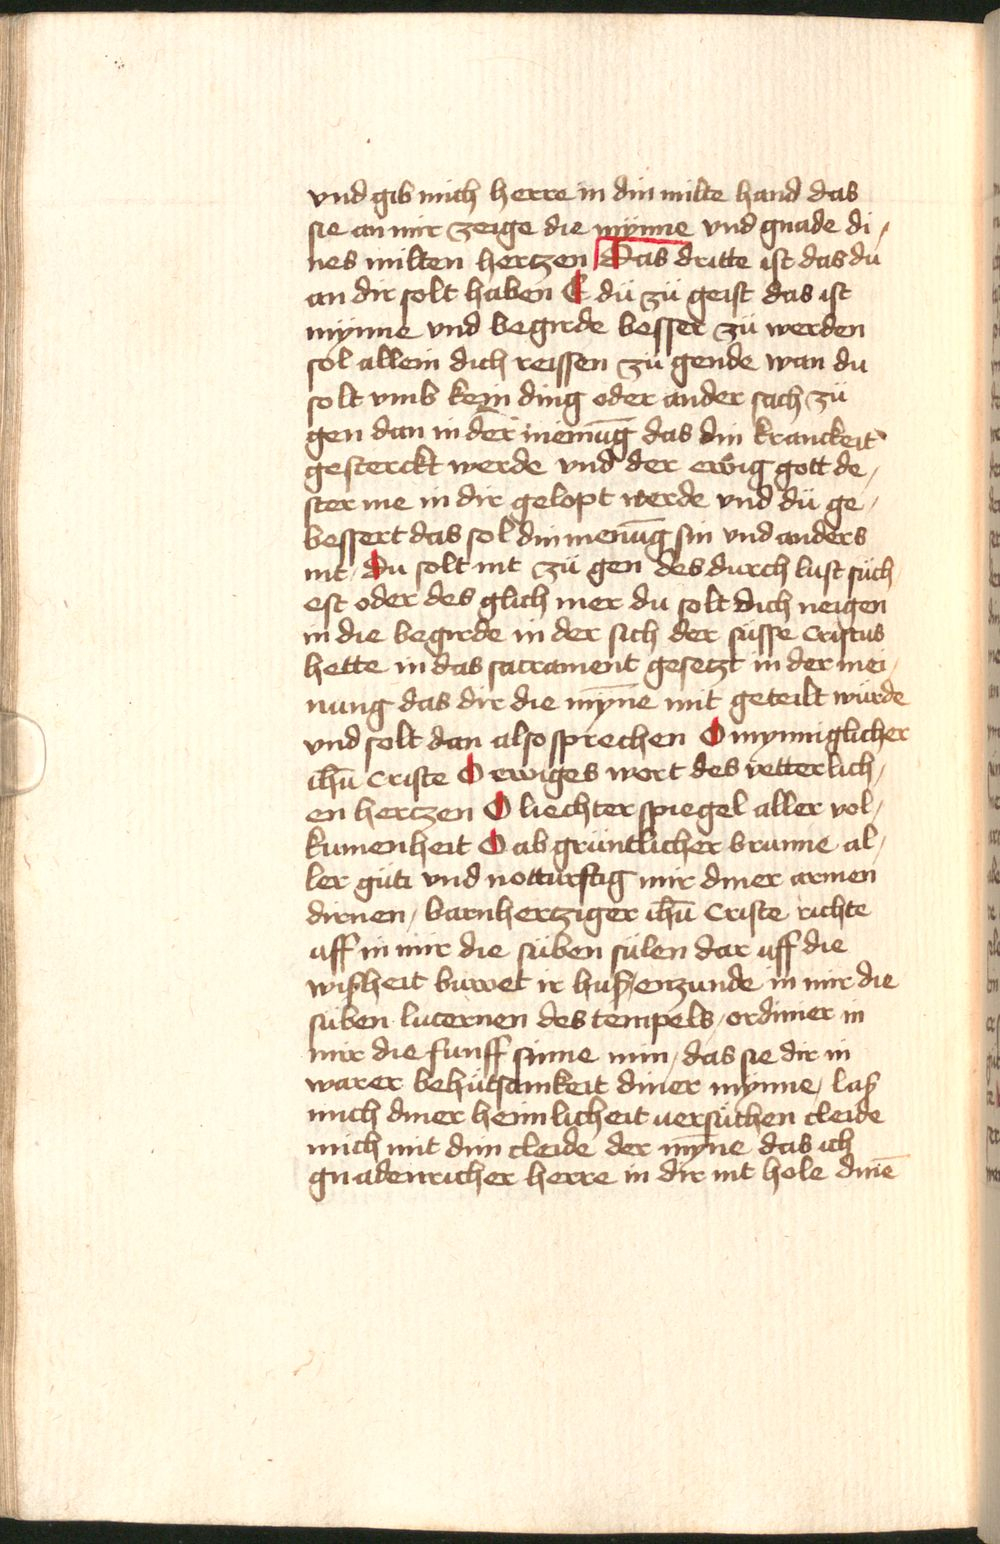 vnd gib mich herre in din milte hand das
sie an mir zeige die mÿnne vnd gnade di /
nes milten hertzen Das dritte ist das dü
an dir solt haben E dü zü geist das ist
mÿnne vnd begirde besser zü werden
sol allein dich reissen zü gende wan du
solt vmb kein ding oder ander sach zü
gen dan in der meinūg das din kranckeit
gesterckt werde vnd der ewig gott de /
ster me in dir gelopt werde vnd dü ge /
bessert das sol din menūg sin vnd anders
nit / du solt nit zü gen des durch lust süch
est oder des glich mer du solt dich neigen
in die begirde in der sich der süsse cristus
hette in das sacrament gesetzt in der mei /
nung das dir die mÿne mit geteilt würde
vnd solt dan also sprechen O mynniglicher
ihū criste O ewiges wort des vetterlich /
en hertzen O liechter spiegel aller vol /
kumenheit O ab grüntlicher brunne al /
ler güti vnd notturftig mir diner armen
dirnen / barmhertziger ihū criste richte
uff in mir die süben sülen dar uff die
wißheit buwet ir huß / enzunde in mir die
süben lucernen des tempels / ordinier in
mir die funff sinne min / das sie dir in
warer behütsamkeit diner mÿnne / laß
mich diner heimlicheit uersüchen cleide
mich mit dim cleide der mÿne das ich
gnadenricher herre in dir nit hole dinē